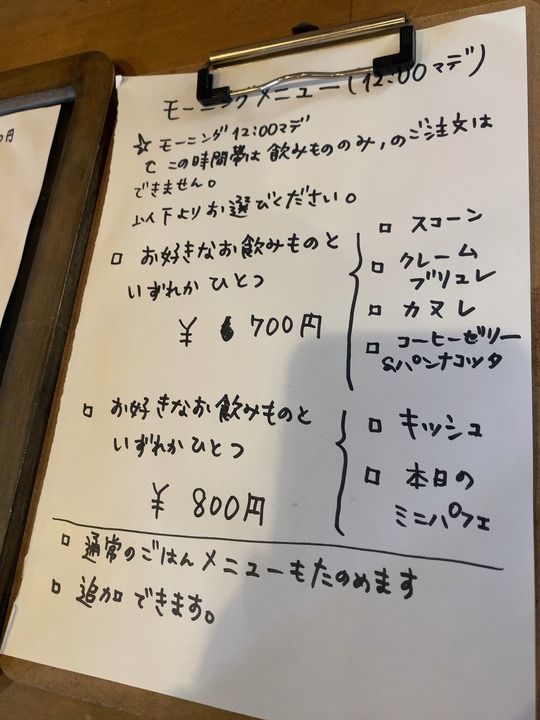 モーニングメニュー(12:00マデ)
☆ モーニング12:00マデ
この時間帯は飲みもののみ,のご注文は
できません。
以下よりお選びください。
□ お好きなお飲みものと
いずれか ひとつ
¥ 700円
□ スコーン
□ クレーム
ブリュレ
□ カヌレ
□ コーヒーゼリー
&パンナコッタ
□ お好きなお飲みものと
いずれかひとつ
¥ 800円
□ キッシュ
□ 本日の
ミニパフェ
□ 通常のごはんメニューもたのめます
□ 追加できます。
円